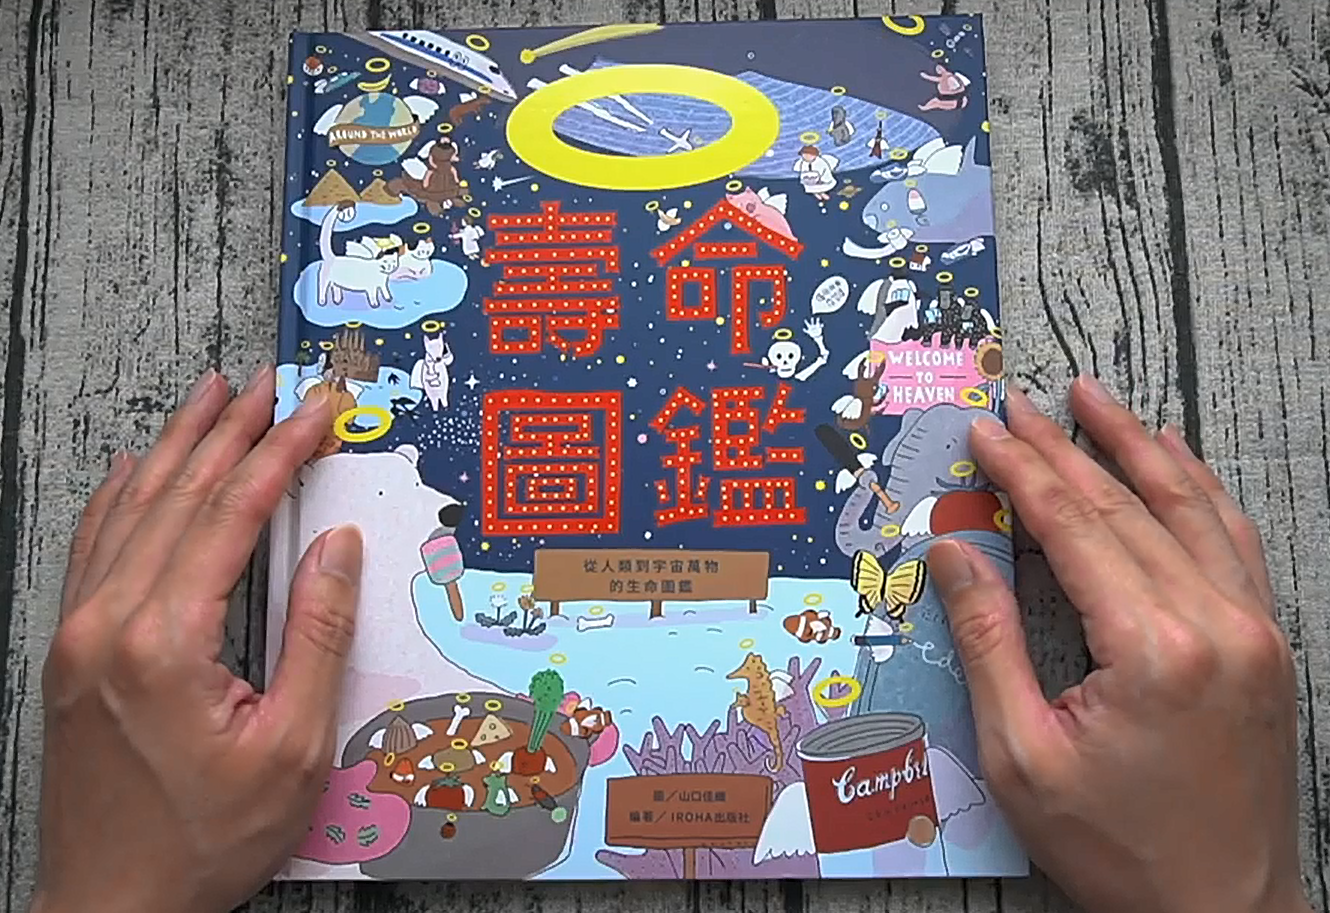 AROUND THE WORLD
壽命
圖鑑
WELCOME
TO
HEAVEN
從人類到宇宙萬物
的生命圖鑑
圖／山口佳織
編著／IROHA出版社